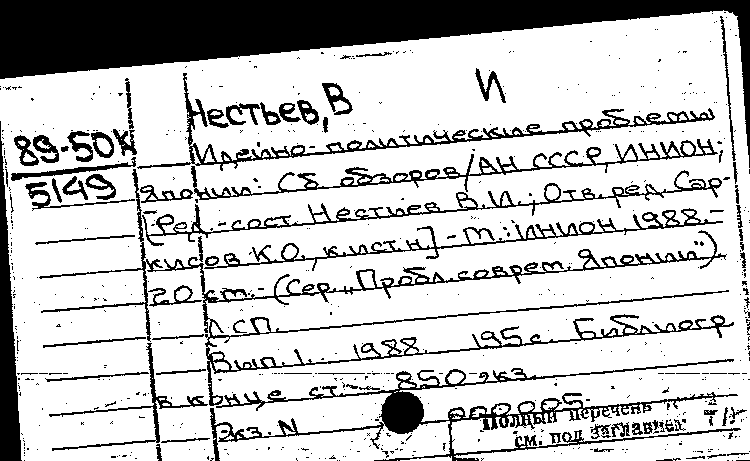 Нестьев, В И
89-50к
5149
Идейно-политические проблемы
Японии: Сб обзоров/АН СССР, ИНИОН;
[Ред.-сост. Нестьев В.И.; Отв. ред. Сар-
кисов К.О., к.ист.н] - М.: ИНИОН, 1988.-
20 см.- (Сер. „Пробл. соврем. Японии").
ДСП.
Вып. 1. 1988. 195 с. Библиогр
в конце ст. 850 экз.
Экз. N 000005.
Полный перечень
см. под заглавием